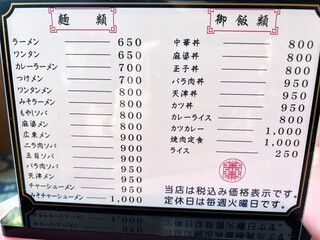 麺類
ラーメン 650
ワンタン 650
カレーラーメン 700
つけメン 700
ワンタンメン 800
みそラーメン 800
もやしソバ 800
麻婆メン 800
広東メン 900
ニラ肉ソバ 900
五目ソバ 900
バラ肉ソバ 950
天津メン 950
チャーシューメン 950
みそチャーシューメン 1,000
御飯類
中華丼 800
麻婆丼 800
玉子丼 800
バラ肉丼 950
天津丼 950
カツ丼 950
カレーライス 800
カツカレー 1,000
焼肉定食 1,000
ライス 250
当店は税込み価格表示です。
定休日は毎週火曜日です。